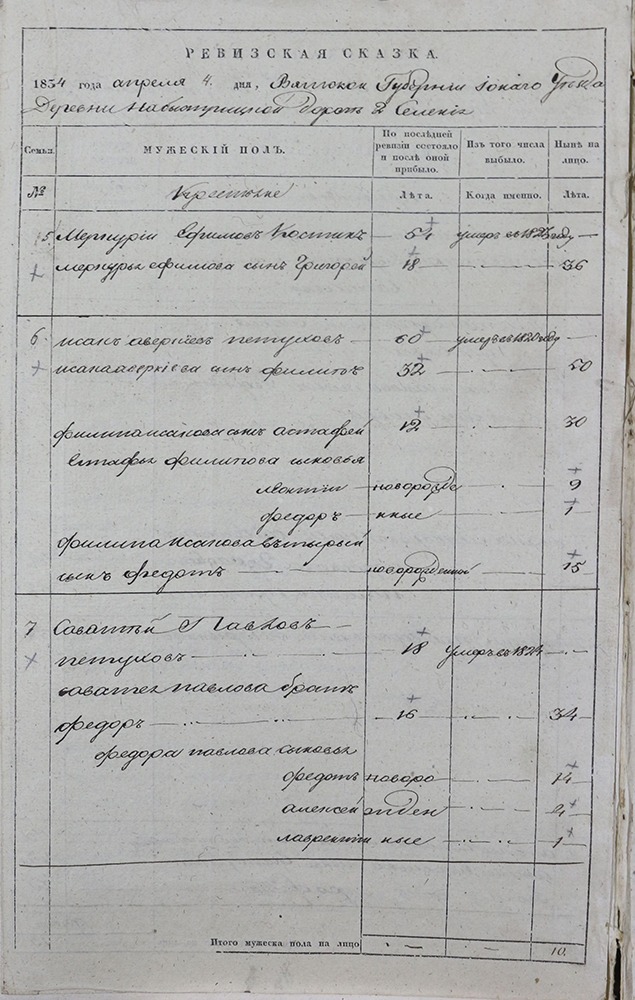 РЕВИЗСКАЯ СКАЗКА.
1834 года апреля 4. дня, Вятской Губернии Уезда
Деревни 2 Селенія
Семья. МУЖЕСКІЙ ПОЛЪ. По послѣдней ревизіи состояло и послѣ оной прибыло. Изъ того числа выбыло. Нынѣ на лицо.
№ Крестьяне Лѣта. Когда именно. Лѣта.
5 Меркурій Ефимовъ Костинъ 54 умеръ въ 1823 году
меркурья ефимова сынъ Григорей 18 36
6 исакъ аверкіевъ петуховъ 60 умеръ въ 1820 году
исака аверкіева сынъ филипъ 32 50
филипа исакова сынъ астафей 12 30
Естафья филипова сыновья
леонтій новорожде 9
федоръ нные 1
филипа исакова вторый
сынъ федотъ новорожденной 15
7 Саватѣй Павловъ
петуховъ 18 умеръ въ 1824
саватея павлова братъ
федоръ 16 34
федора павлова сыновья
федотъ новоро 14
алексей жден 4
лаврентій ные 1
Итого мужеска пола на лицо 10.